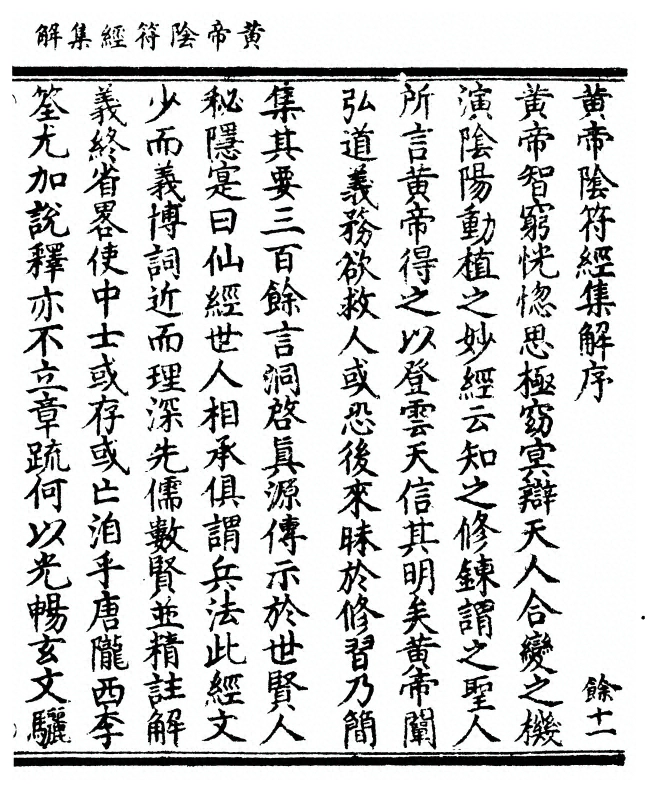 黃帝陰符經集解
黃帝陰符經集解序
餘十一
黃帝智窮恍惚思極窈冥辯天人合變之機
演陰陽動植之妙經云知之修鍊謂之聖人
所言黃帝得之以登雲天信其明矣黃帝闡
弘道義務欲救人或恐後來昧於修習乃簡
集其要三百餘言洞啓眞源傳示於世賢人
秘隱寔曰仙經世人相承俱謂兵法此經文
少而義博詞近而理深先儒數賢並精註解
義終省畧使中士或存或亡洎乎唐隴西李
筌尤加說釋亦不立章䟽何以光暢玄文驪